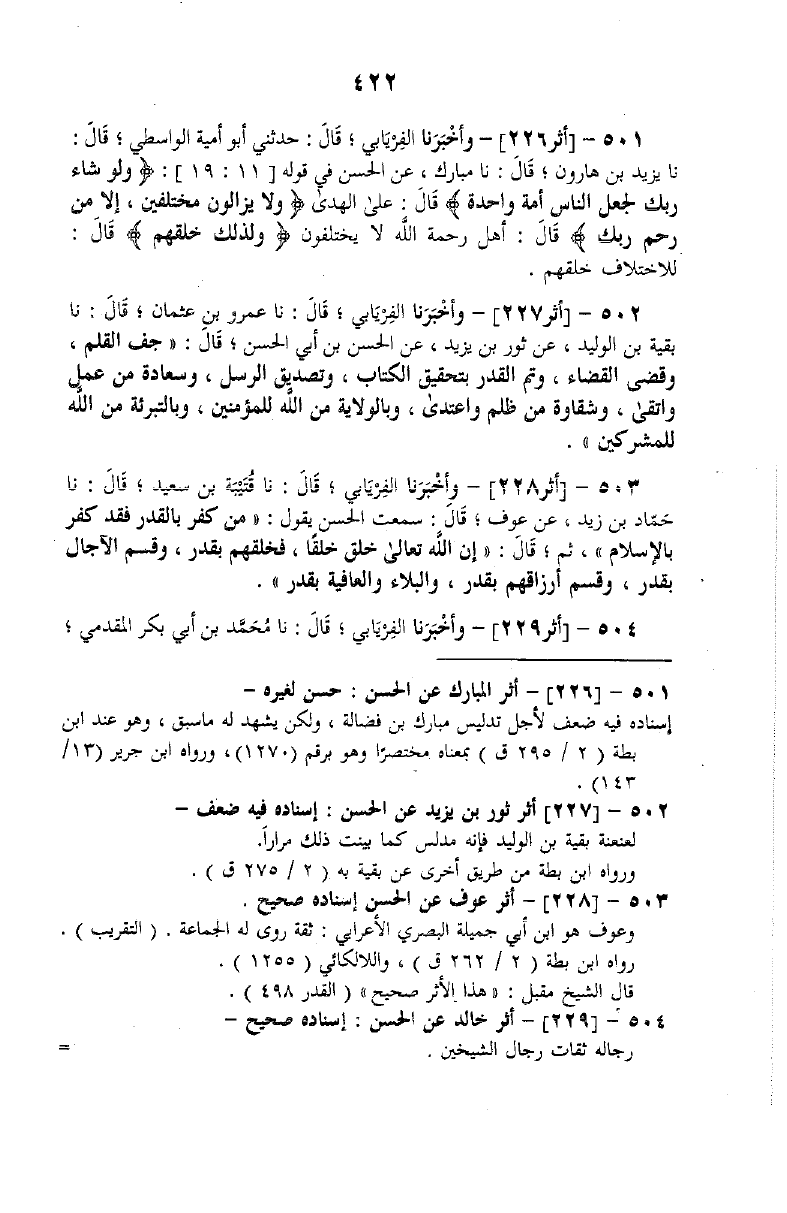 ٤٢٢
٥٠١ - [أثر٢٢٦] - وأَخْبَرَنا الفِرْيَابي ؛ قَالَ : حدثني أبو أمية الواسطي ؛ قَالَ :
نا يزيد بن هارون ؛ قَالَ : نا مبارك ، عن الحسن في قوله [ ١١ : ١٩ ] : ﴿ ولو شاء
ربك لجعل الناس أمة واحدة ﴾ قَالَ : علىٰ الهدىٰ ﴿ ولا يزالون مختلفين ، إلا من
رحم ربك ﴾ قَالَ : أهل رحمة اللَّه لا يختلفون ﴿ ولذلك خلقهم ﴾ قَالَ :
للاختلاف خلقهم .
٥٠٢ - [أثر٢٢٧] - وأخْبَرَنا الفِرْيَابي ؛ قَالَ : نا عمرو بن عثمان ؛ قَالَ : نا
بقية بن الوليد ، عن ثور بن يزيد ، عن الحسن بن أبي الحسن ؛ قَالَ : « جف القلم ،
وقضي القضاء ، وتم القدر بتحقيق الكتاب ، وتصديق الرسل ، وسعادة من عمل
واتقىٰ ، وشقاوة من ظلم واعتدىٰ ، وبالولاية من اللَّه للمؤمنين ، وبالتبرئة من اللَّه
للمشركين » .
٥٠٣ - [أثر٢٢٨] - وأخْبَرَنا الفِرْيَابي ؛ قَالَ : نا قُتَيْبَة بن سعيد ؛ قَالَ : نا
حَمَّاد بن زيد ، عن عوف ؛ قَالَ : سمعت الحسن يقول : « من كفر بالقدر فقد كفر
بالإسلام » ، ثم ؛ قَالَ : « إن اللَّه تعالىٰ خلق خلقًا ، فخلقهم بقدر ، وقسم الآجال
بقدر ، وقسم أرزاقهم بقدر ، والبلاء والعافية بقدر » .
٥٠٤ - [أثر٢٢٩] - وأخْبَرَنا الفِرْيَابي ؛ قَالَ : نا مُحَمَّد بن أبي بكر المقدمي ؛
٥٠١ - [٢٢٦] - أثر المبارك عن الحسن : حسن لغيره -
إسناده فيه ضعف لأجل تدليس مبارك بن فضالة ، ولكن يشهد له ماسبق ، وهو عند ابن
بطة ( ٢ / ٢٩٥ ق ) بمعناه مختصرًا وهو برقم (١٢٧٠)، ورواه ابن جرير (١٣/
١٤٣) .
٥٠٢ - [٢٢٧] أثر ثور بن يزيد عن الحسن : إسناده فيه ضعف -
لعنعنة بقية بن الوليد فإنه مدلس كما بينت ذلك مراراً.
ورواه ابن بطة من طريق أخرى عن بقية به ( ٢ / ٢٧٥ ق ) .
٥٠٣ - [٢٢٨] - أثر عوف عن الحسن إسناده صحيح .
وعوف هو ابن أبي جميلة البصري الأعرابي : ثقة روى له الجماعة . ( التقريب ) .
رواه ابن بطة ( ٢ / ٢٦٢ ق ) ، واللالكائي ( ١٢٥٥ ) .
قال الشيخ مقبل : « هذا الأثر صحيح » ( القدر ٤٩٨ ) .
٥٠٤ - [٢٢٩] - أثر خالد عن الحسن : إسناده صحيح -
رجاله ثقات رجال الشيخين . =